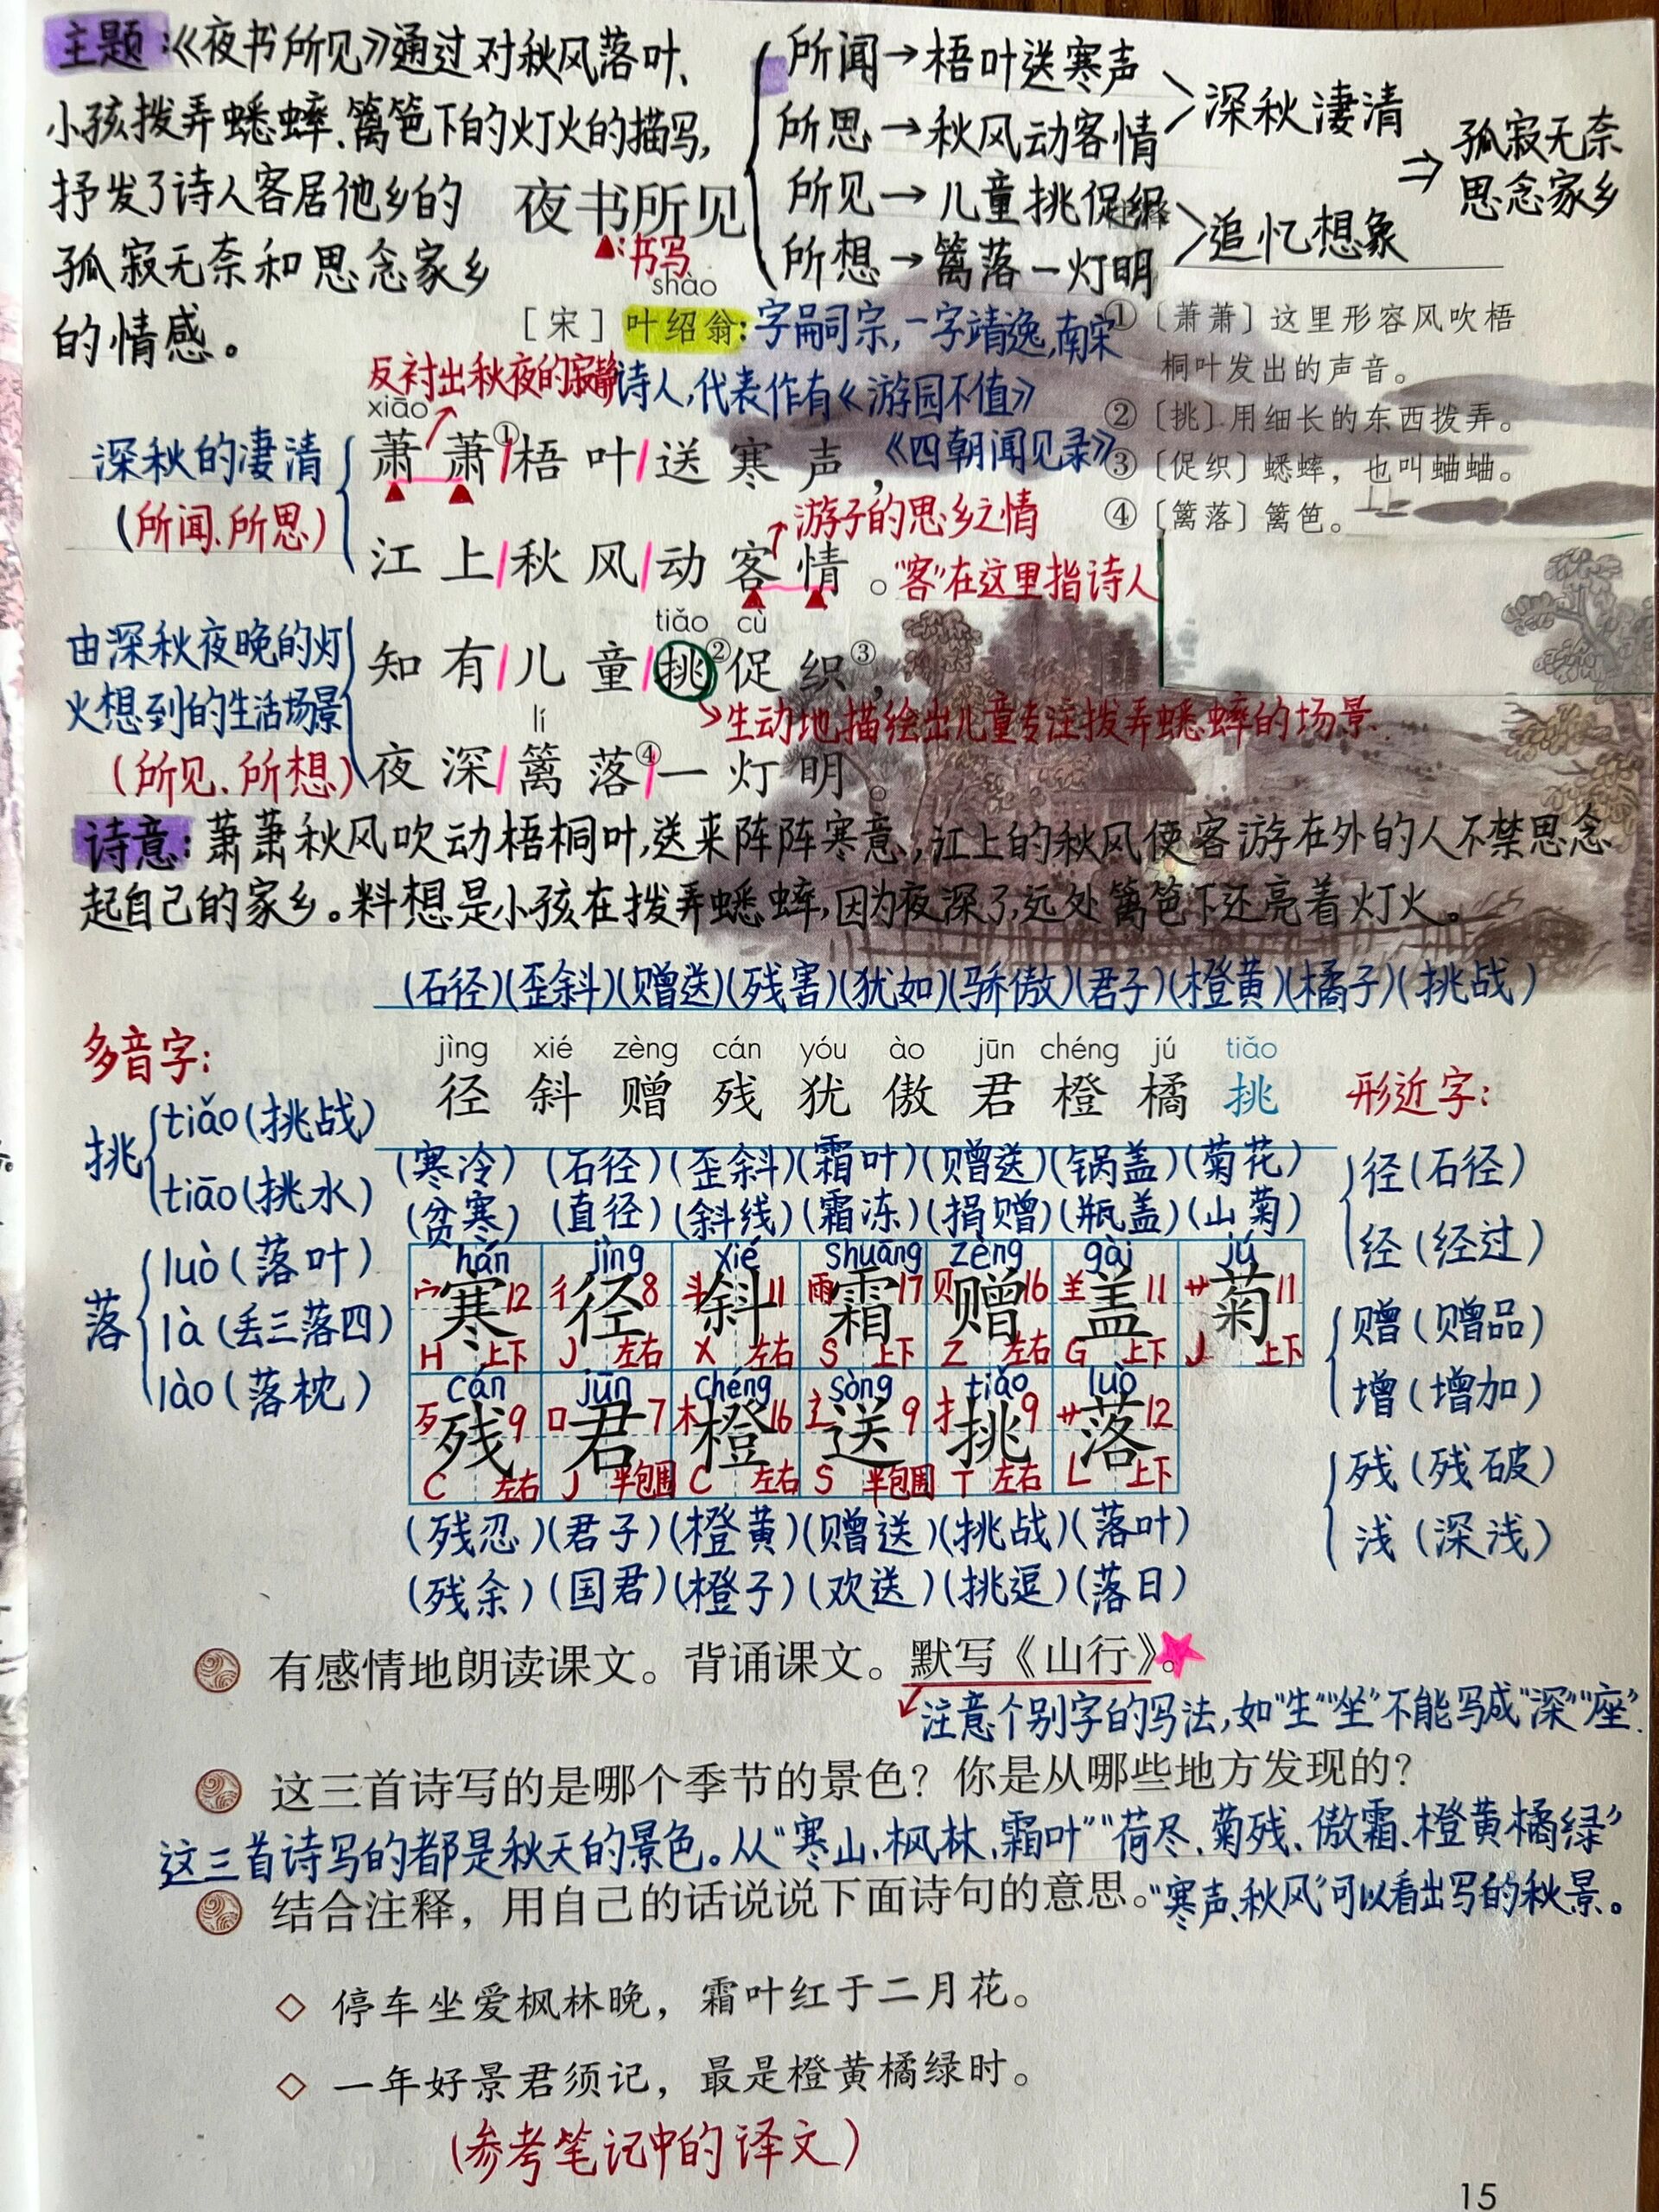 主题:《夜书所见》通过对秋风落叶、
小孩拨弄蟋蟀、篱笆下的灯火的描写,
抒发了诗人客居他乡的
孤寂无奈和思念家乡
的情感。
夜书所见
▲:书写
所闻→梧叶送寒声
所思→秋风动客情
深秋凄清
所见→儿童挑促织
所想→篱落一灯明
追忆想象
⇒孤寂无奈
思念家乡
shào
[宋] 叶绍翁:字嗣宗,一字靖逸,南宋
诗人,代表作有《游园不值》
《四朝闻见录》
①〔萧萧〕这里形容风吹梧
桐叶发出的声音。
②〔挑〕用细长的东西拨弄。
③〔促织〕蟋蟀,也叫蛐蛐。
④〔篱落〕篱笆。
反衬出秋夜的寂静
xiāo
深秋的凄清
(所闻、所思)
萧萧①/梧叶/送寒声,
游子的思乡之情
江上/秋风/动客情。
"客"在这里指诗人
tiǎo cù
由深秋夜晚的灯
火想到的生活场景
(所见、所想)
知有/儿童/挑②促织③,
生动地描绘出儿童专注拨弄蟋蟀的场景.
lí
夜深/篱落④/一灯明。
诗意:萧萧秋风吹动梧桐叶,送来阵阵寒意,江上的秋风使客游在外的人不禁思念
起自己的家乡。料想是小孩在拨弄蟋蟀,因为夜深了,远处篱笆下还亮着灯火。
(石径)(歪斜)(赠送)(残害)(犹如)(骄傲)(君子)(橙黄)(橘子)(挑战)
jìng xié zèng cán yóu ào jūn chéng jú tiǎo
径 斜 赠 残 犹 傲 君 橙 橘 挑
多音字:
挑 tiǎo(挑战)
tiāo(挑水)
落 luò(落叶)
là(丢三落四)
lào(落枕)
(寒冷)(石径)(歪斜)(霜叶)(赠送)(锅盖)(菊花)
(贫寒)(直径)(斜线)(霜冻)(捐赠)(瓶盖)(山菊)
hán jìng xié shuāng zèng gài jú
宀寒12 彳径8 斗斜11 雨霜17 贝赠16 羊盖11 艹菊11
H 上下 J 左右 X 左右 S 上下 Z 左右 G 上下 J 上下
cán jūn chéng sòng tiǎo luò
歹残9 口君7 木橙16 辶送9 扌挑9 艹落12
C 左右 J 半包围 C 左右 S 半包围 T 左右 L 上下
(残忍)(君子)(橙黄)(赠送)(挑战)(落叶)
(残余)(国君)(橙子)(欢送)(挑逗)(落日)
形近字:
径(石径)
经(经过)
赠(赠品)
增(增加)
残(残破)
浅(深浅)
有感情地朗读课文。背诵课文。默写《山行》。
注意个别字的写法,如"生""坐"不能写成"深""座".
这三首诗写的是哪个季节的景色?你是从哪些地方发现的?
这三首诗写的都是秋天的景色。从"寒山、枫林、霜叶""荷尽、菊残、傲霜、橙黄橘绿"
"寒声、秋风"可以看出写的秋景。
结合注释,用自己的话说说下面诗句的意思。
◇ 停车坐爱枫林晚,霜叶红于二月花。
◇ 一年好景君须记,最是橙黄橘绿时。
(参考笔记中的译文)
15